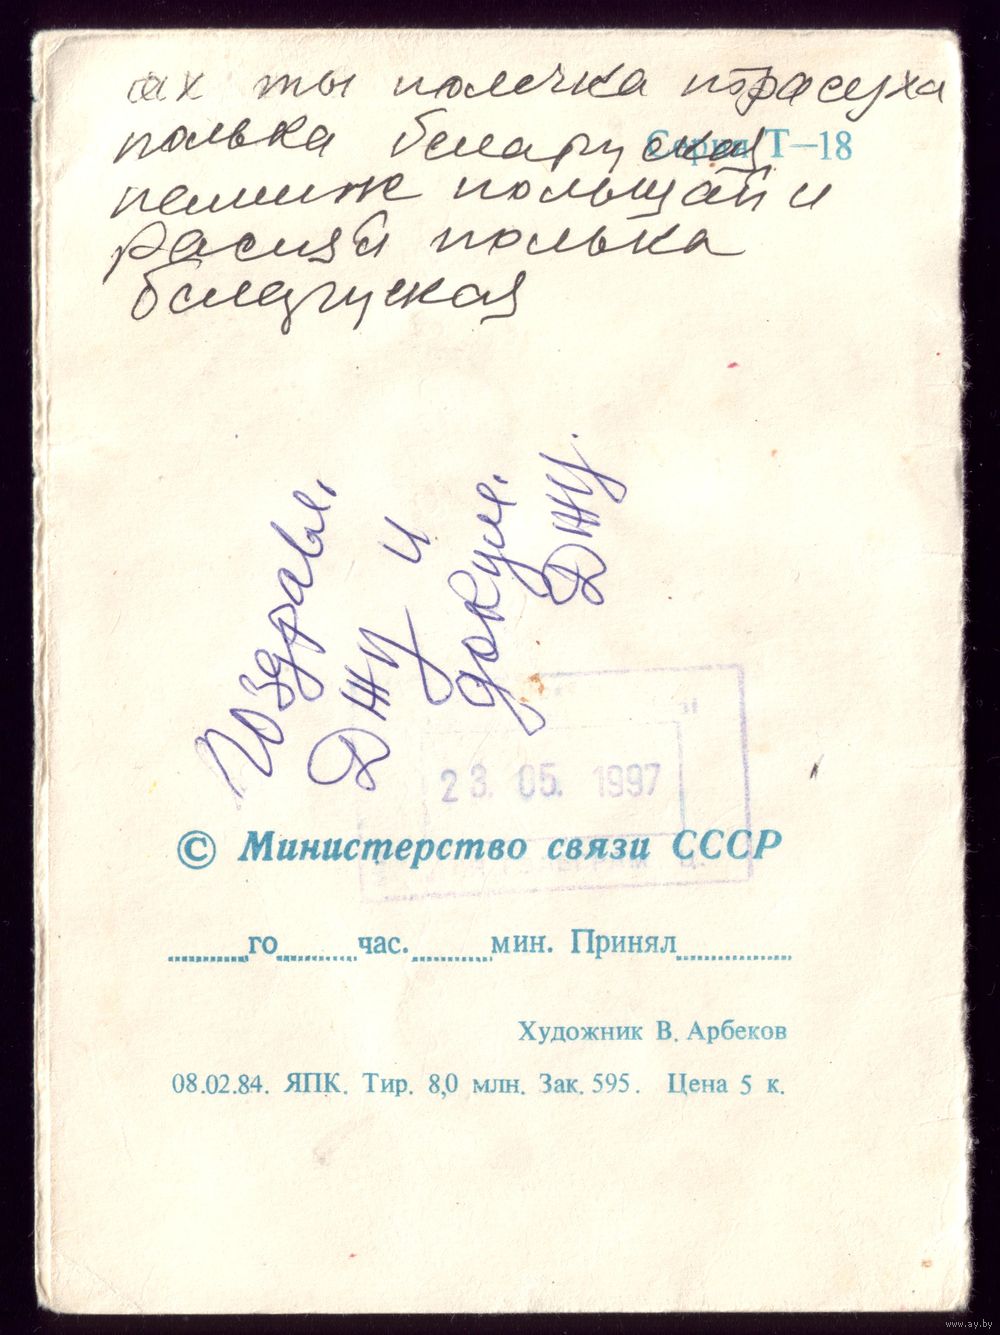 ах ты полечка трасуха
полька беларуская
Серия Т—18
пемиж польщай и
расияй полька
беларуская
Поздравл.
ДЖЦ и
докум.
ДЖЦ.
23. 05. 1997
© Министерство связи СССР
го час. мин. Принял
Художник В. Арбеков
08.02.84. ЯПК. Тир. 8,0 млн. Зак. 595. Цена 5 к.
www.ay.by